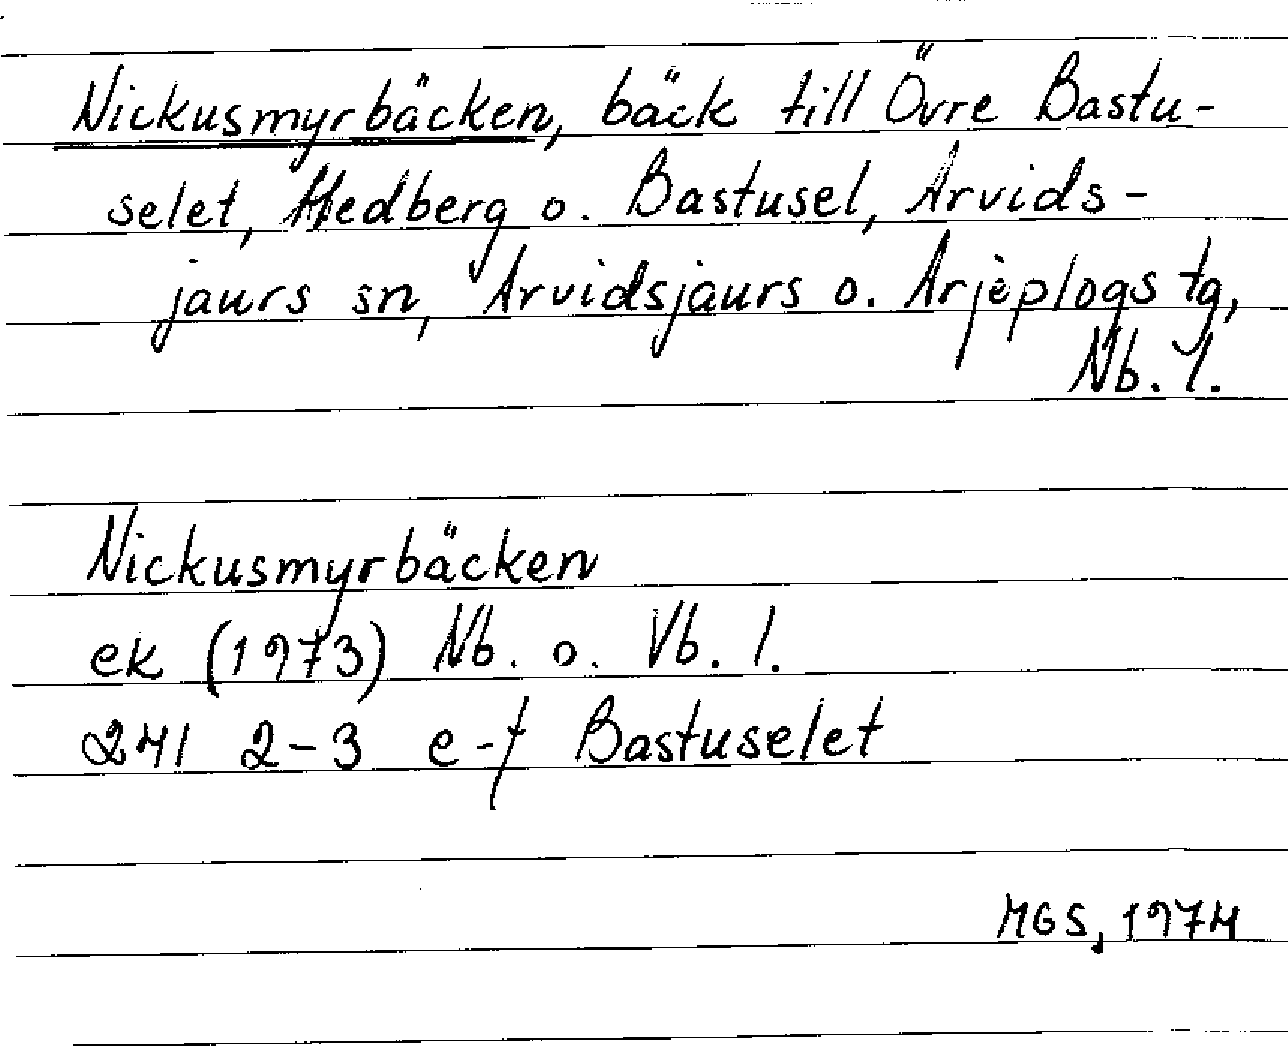 Nickusmyrbäcken, bäck till Övre Bastu-
selet, Hedberg o. Bastusel, Arvids-
jaurs sn, Arvidsjaurs o. Arjeplogs tg,
Nb. l.
Nickusmyrbäcken
ek (1973) Nb. o. Vb. l.
241 2-3 e-f Bastuselet
MGS, 1974